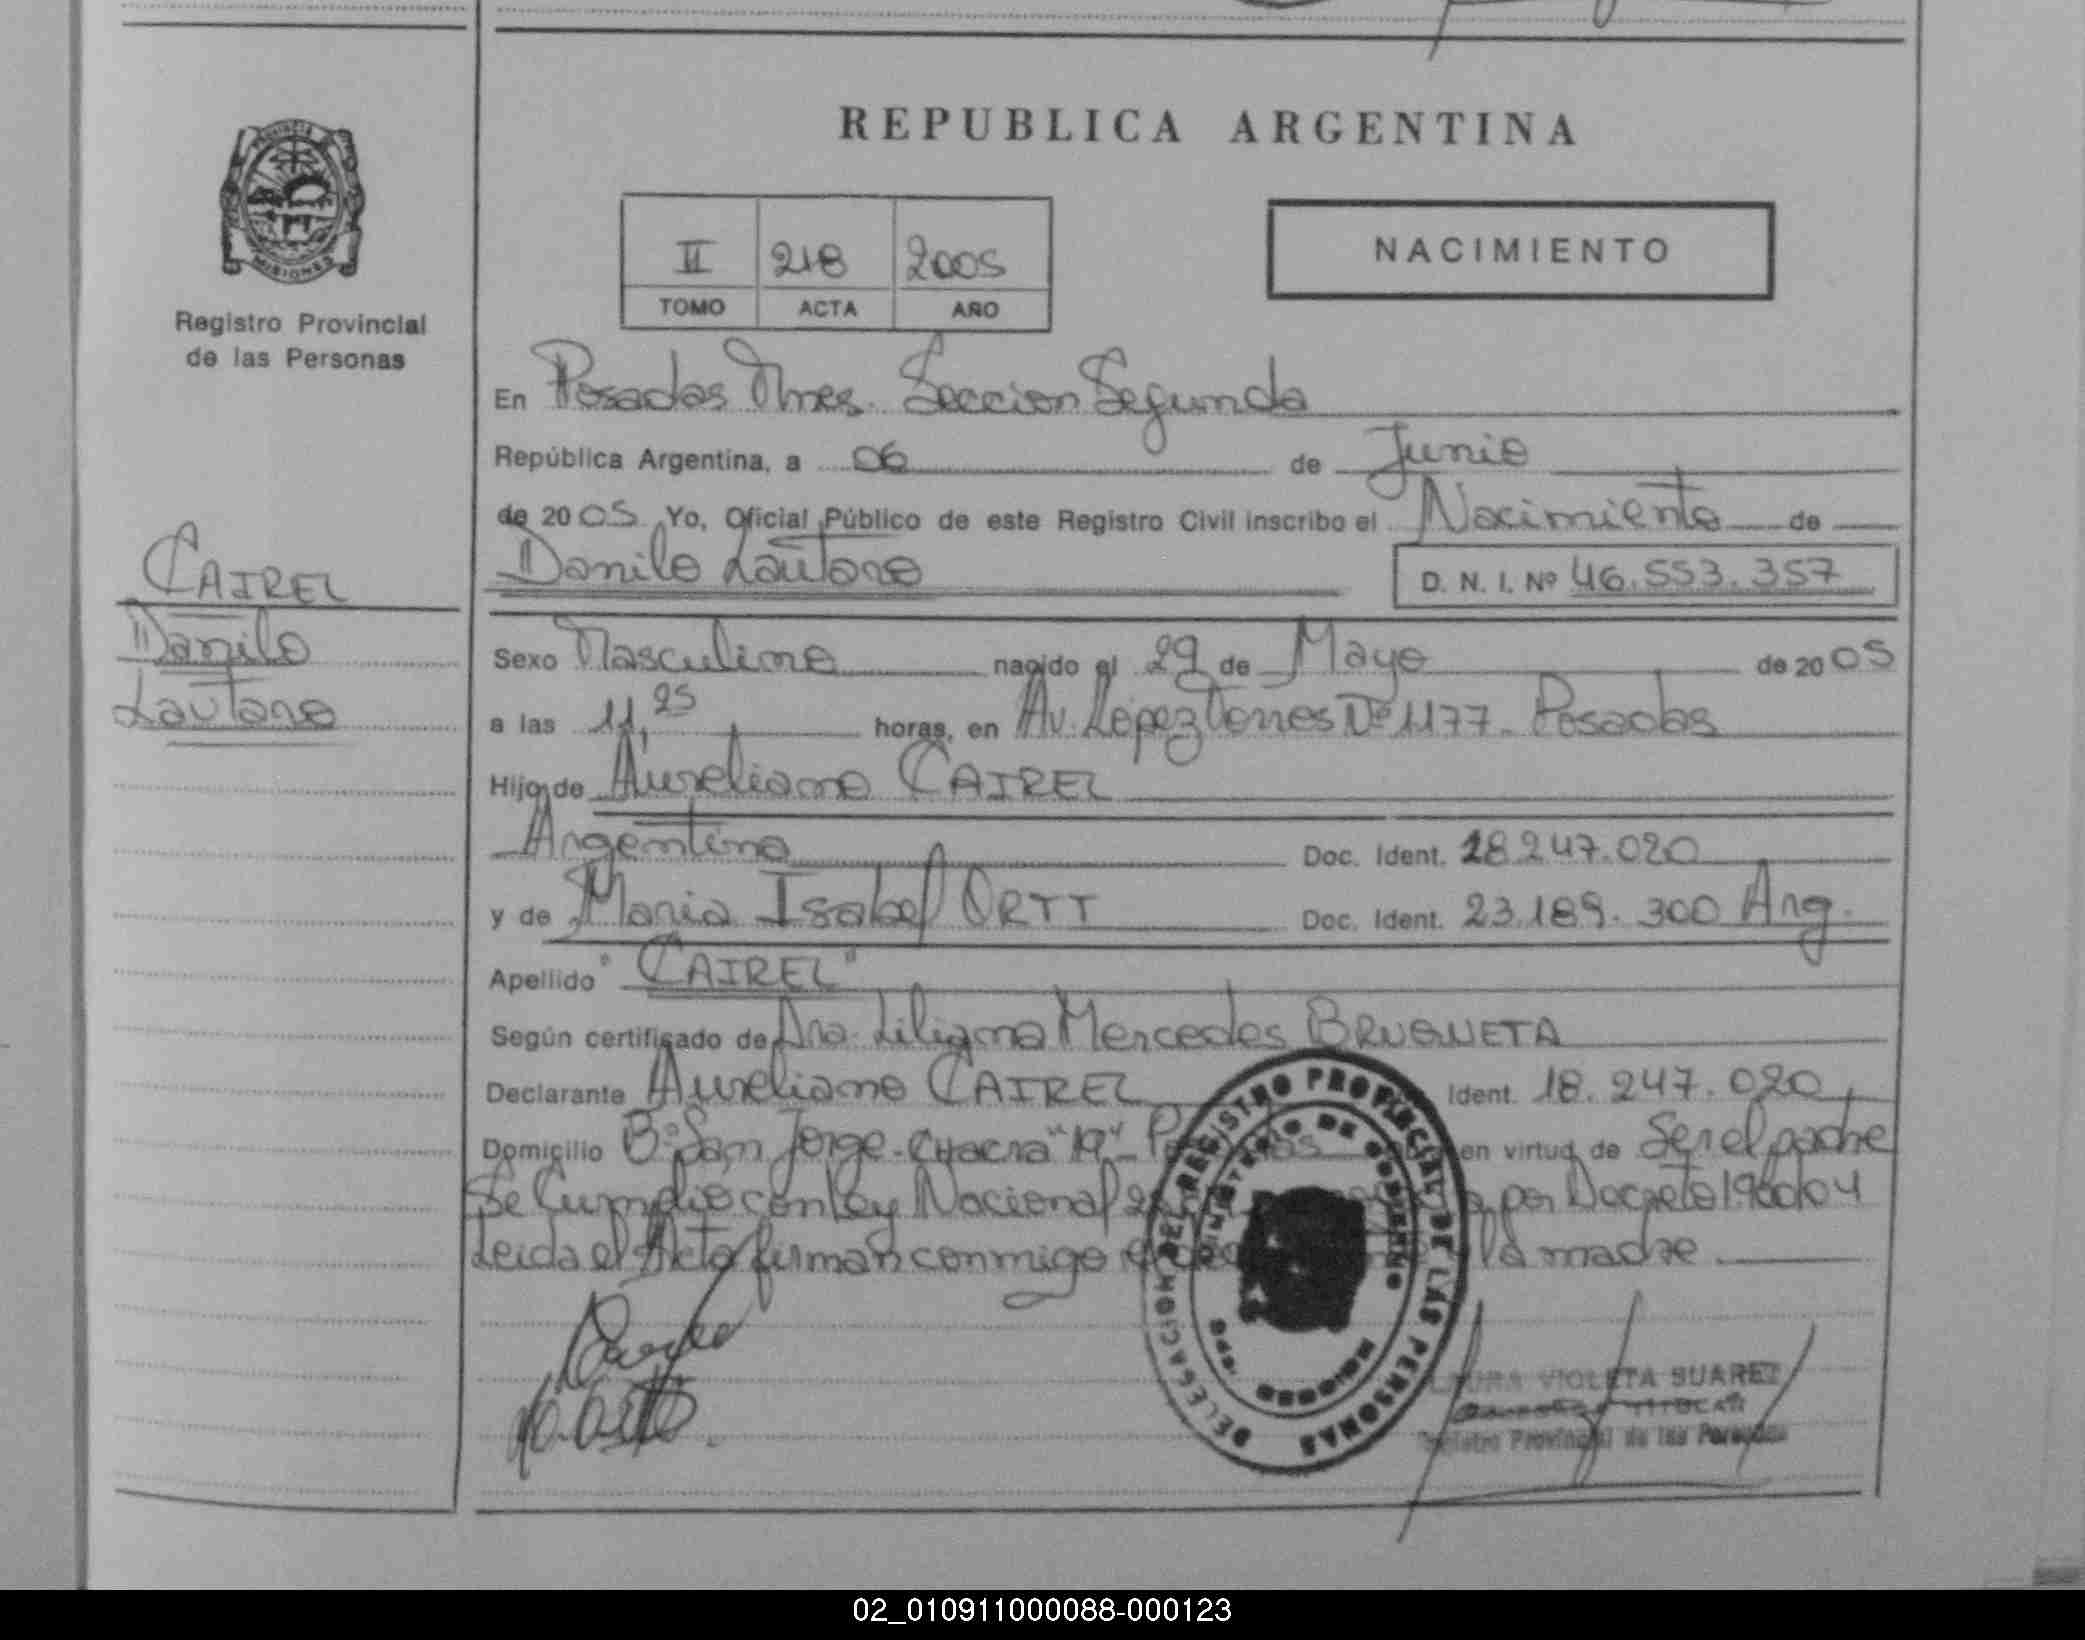 REPUBLICA ARGENTINA
PROVINCIA
MISIONES
Registro Provincial
de las Personas
II 218 2005
TOMO ACTA AÑO
NACIMIENTO
En Posadas Mnes. Seccion Segunda
República Argentina, a 06 de Junio
de 2005 Yo, Oficial Público de este Registro Civil inscribo el Nacimiento de
Danilo Lautaro
D. N. I. Nº 46.553.357
CAIREL
Danilo
Lautaro
Sexo Masculino nacido el 29 de Mayo de 2005
a las 11,25 horas, en Av. Lopez Torres Nº 1177. Posadas
Hijo de Aureliano CAIREL
Argentino Doc. Ident. 18.247.020
y de Maria Isabel ORTT Doc. Ident. 23.189.300 Arg.
Apellido "CAIREL"
Según certificado de Dra. Liliana Mercedes BRUGUETA
Declarante Aureliano CAIREL Ident. 18.247.020
Domicilio Bº San Jorge - CHacra "19" - en virtud de Ser el padre
Se Cumplio con Ley Nacional por Decreto
Leida el Acta firman conmigo la madre
DELEGACION DEL REGISTRO PROVINCIAL DE LAS PERSONAS
MINISTERIO DE GOBIERNO
MISIONES
LAURA VIOLETA SUAREZ
Registro Provincial de las Personas
02_010911000088-000123